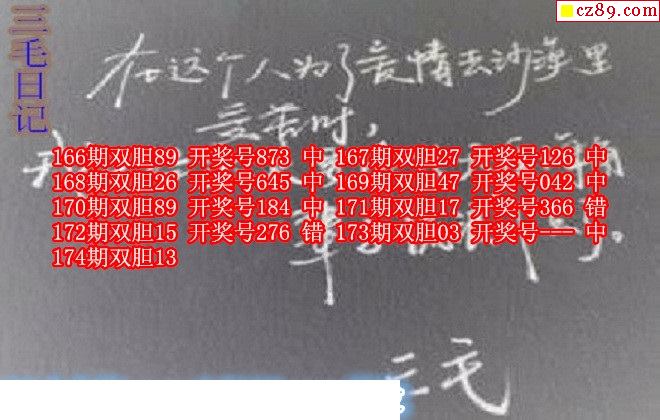 cz89.com
三毛日记
在这个人为了爱情去沙漠里
受苦时，
166期双胆89 开奖号873 中 167期双胆27 开奖号126 中
168期双胆26 开奖号645 中 169期双胆47 开奖号042 中
170期双胆89 开奖号184 中 171期双胆17 开奖号366 错
172期双胆15 开奖号276 错 173期双胆03 开奖号--- 中
174期双胆13
三毛